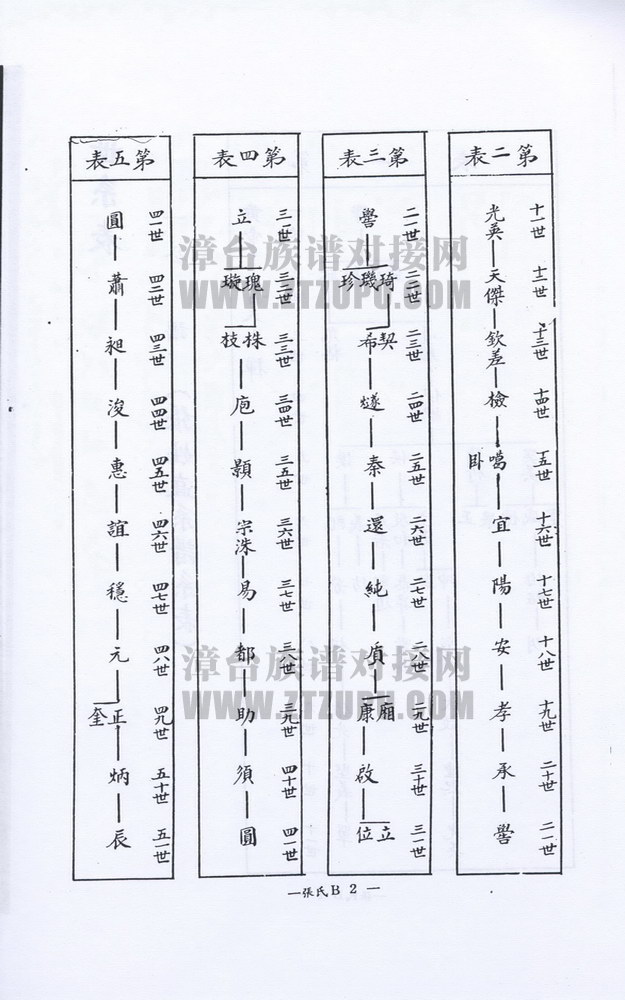 第二表
十一世 光英
十二世 天傑
十三世 欽差
十四世 檢
十五世 噶 卧
十六世 宜
十七世 陽
十八世 安
十九世 孝
二十世 承
二一世 譽
第三表
二一世 譽
二二世 琦 璣 珍
二三世 契 希
二四世 燧
二五世 秦
二六世 還
二七世 純
二八世 質
二九世 廂 康
三十世 啟
三一世 立 位
第四表
三一世 立
三二世 瑰 璇
三三世 株 枝
三四世 庖
三五世 顥
三六世 宗洙
三七世 易
三八世 都
三九世 助
四十世 須
四一世 圓
第五表
四一世 圓
四二世 蕭
四三世 昶
四四世 浚
四五世 惠
四六世 誼
四七世 穩
四八世 元
四九世 正 奎
五十世 炳
五一世 辰
—張氏B 2—
漳台族谱对接网
WWW.ZTZUPU.COM
漳台族谱对接网
WWW.ZTZUPU.COM